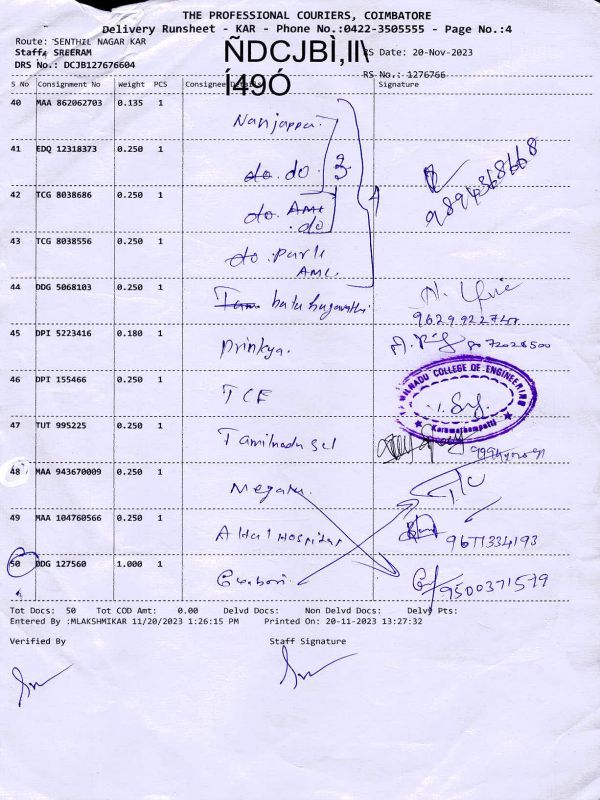 THE PROFESSIONAL COURIERS, COIMBATORE
Delivery Runsheet - KAR - Phone No.:0422-3505555 - Page No.:4
Route: SENTHIL NAGAR KAR
ÑDCJBÌ,II\
RS Date: 20-Nov-2023
Staff: SREERAM
DRS No.: DCJB127676604
Í49Ó
RS No.: 1276766
S No Consignment No Weight PCS Consignee Details Signature
40 MAA 862062703 0.135 1
Nanjappa.
41 EDQ 12318373 0.250 1
do. do. 3
42 TCG 8038686 0.250 1
do. AMI
.do
4
43 TCG 8038556 0.250 1
do. park
AMI.
44 DDG 5068103 0.250 1
45 DPI 5223416 0.180 1
Prinkya.
8072028500
46 DPI 155466 0.250 1
TCE
TAMILNADU COLLEGE OF ENGINEERING
Karumathampatti
47 TUT 995225 0.250 1
Tamilnadu
48 MAA 943670009 0.250 1
49 MAA 104760566 0.250 1
Hospital
9677334193
50 DDG 127560 1.000 1
9500371579
Tot Docs: 50 Tot COD Amt: 0.00 Delvd Docs: Non Delvd Docs: Delvy Pts:
Entered By :MLAKSHMIKAR 11/20/2023 1:26:15 PM Printed On: 20-11-2023 13:27:32
Verified By Staff Signature